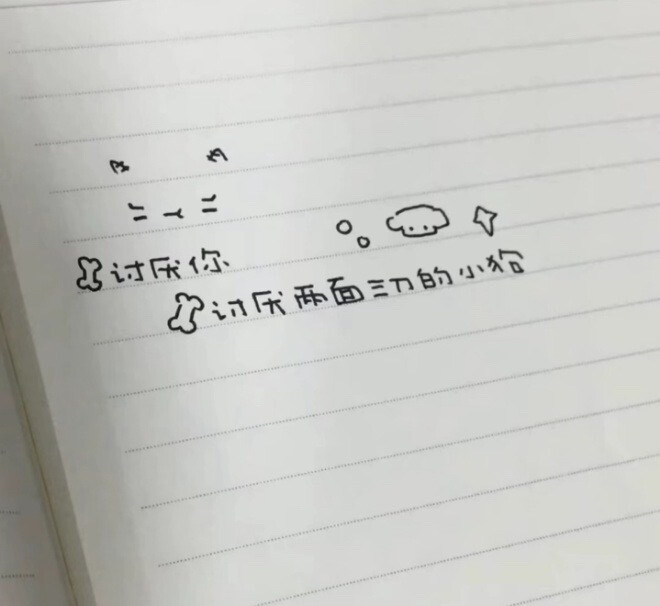 讨厌你
讨厌两面三刀的小狗